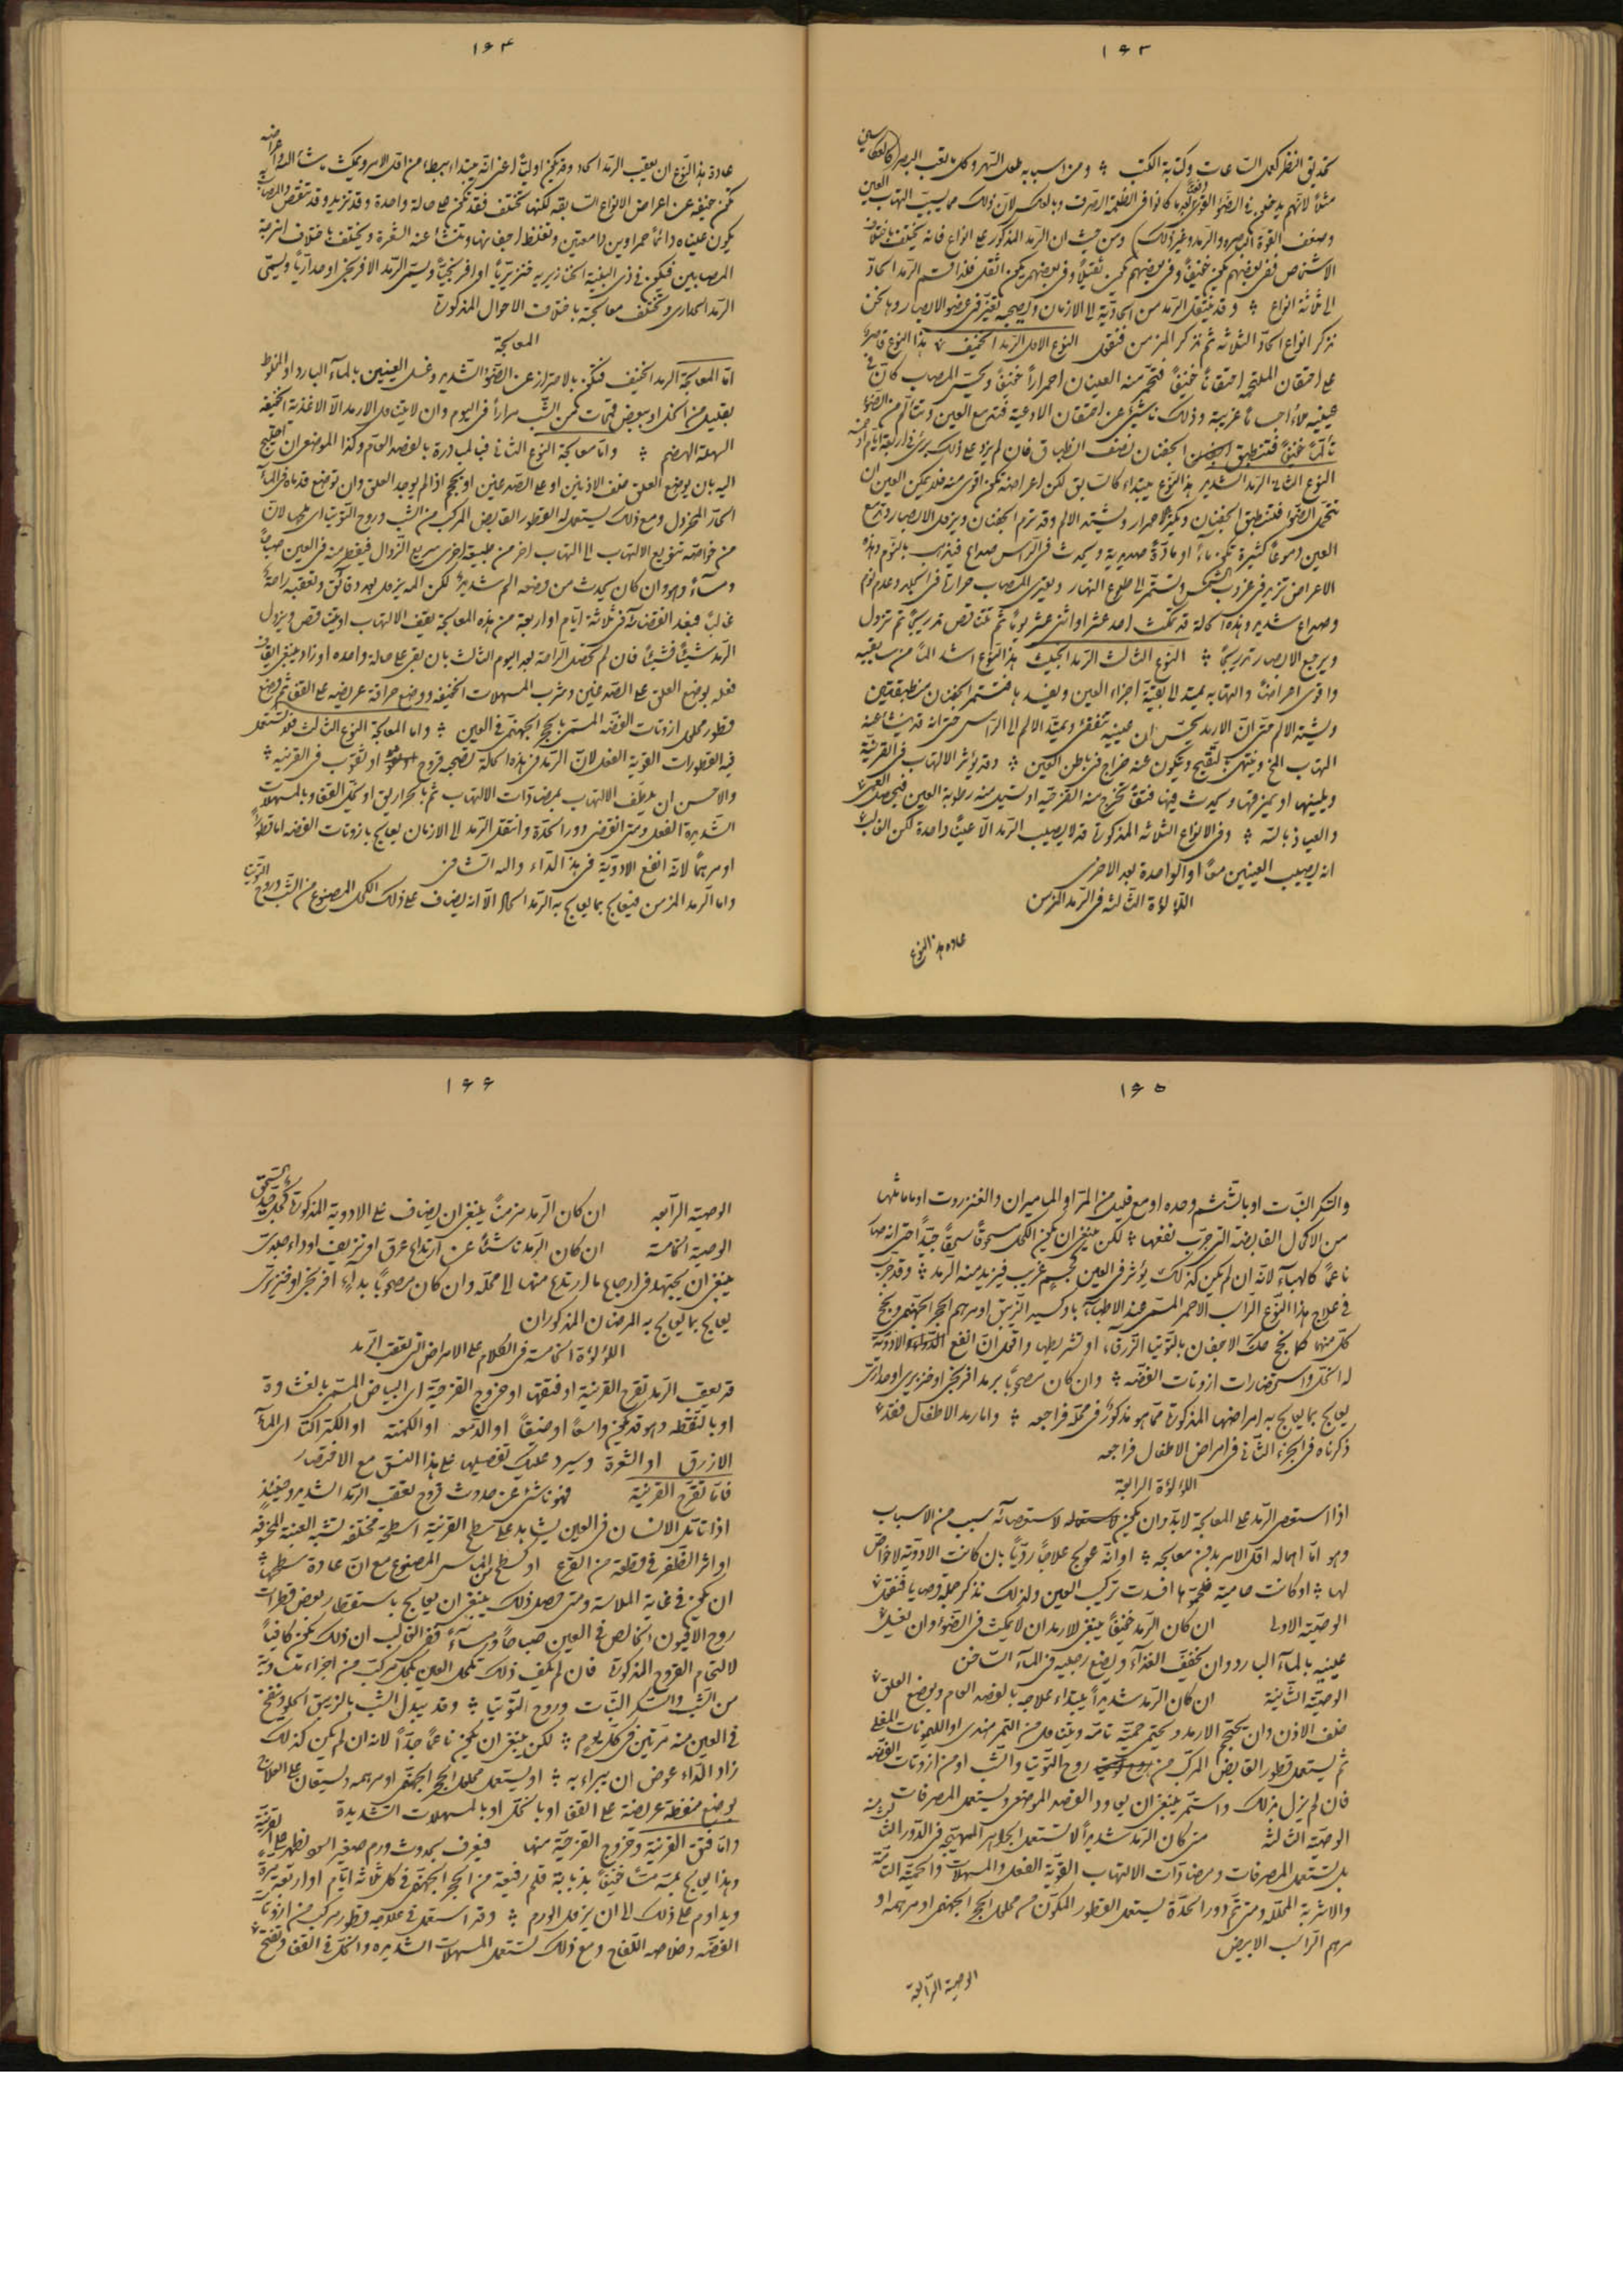 ۱۶۳
تحديق النظر كعمل الساعات وكتابة الكتب ومن اسبابه طول السهر وكل ما يتعب البصر
الاشخاص ففى بعضهم يكون خفيفاً وفى بعضهم يكون ثقيلاً وفى بعضهم يكون اثقل فلذا قسم الرمد الحاد
الى ثلاثة انواع وقد ينتقل الرمد من الحادية الى الازمان
نذكر انواع الحاد الثلاثة ثم نذكر المزمن فنقول النوع الاول الرمد الخفيف هذا النوع
على احتقان الملتحمة احتقاناً خفيفاً فتحمر منه العينان احمراراً خفيفاً ويحس المصاب كان فى
عينيه ملأ اجساماً غريبة وذلك ناشئ عن احتقان الاوعية فتدمع العين وتتألم من الضوء
تألماً خفيفاً فتنطبق الجفنان نصف انطباق فان لم يزد على ذلك برئ فى اربعة ايام او خمسة
النوع الثانى الرمد الشديد هذا النوع يبتداء كالسابق لكن اعراضه تكون اقوى منه فلا يمكن العين ان
تتحمل الضوء فتنطبق الجفنان ويكثر الاحمرار ويشتد الالم وقد ترم الجفنان ويزول الابصار وتدمع
العين دموعاً كثيرة تكون ماء او مادة صديدية ويحدث فى الراس صداع فيذهب بالنوم وهذه
الاعراض تزيد فى غروب الشمس وتستمر الى طلوع النهار ويعترى المصاب حرارة فى الجلد وعدم نوم
وصداع شديد وهذه الحالة قد تمكث احد عشر او اثنى عشر يوماً ثم تتناقص تدريجاً ثم تزول
ويرجع الابصار تدريجاً النوع الثالث الرمد الخبيث هذا النوع اشد الماً من سابقيه
واقوى اعراضاً والتهابه يمتد الى بقية اجزاء العين ويفسدها فتستمر الجفنان منطبقتين
ويشتد الالم حتى ان الارمد يحس ان عينيه تتفقئ ويمتد الالم الى الراس حتى انه قد ينشأ عنه
التهاب المخ وينتهى بالتقيح ويتكون عنه خراج فى باطن العين وقد يؤثر الالتهاب فى القرنية
ويلينها او يمزقها ويحدث فيها فتقاً تخرج منه القزحية او تسيل منه رطوبة العين فيحصل العمى
والعياذ بالله وفى الانواع الثلاثة المذكورة قد لا يصيب الرمد الا عيناً واحدة لكن الغالب
انه يصيب العينين معاً او الواحدة بعد الاخرى
اللؤلؤة الثالثة فى الرمد المزمن
عادة هذا النوع
۱۶۴
عادة هذا النوع ان يعقب الرمد الحاد وقد يكون اولياً اعنى انه يبتداء بطيئاً من اول الامر ويمكث ما شاء الله واعراضه
تكون خفيفة عن اعراض الانواع السابقة لكنها تختلف فقد تكون على حالة واحدة وقد تزيد وقد تنقص والمصاب به
يكون عيناه دائماً حمراوين دامعتين وتغلظ اجفانها وتنشأ عنه الشعرة ويختلف باختلاف ابنية
المصابين فيكون فى ذى البنية الخنازيرية خنزيرياً او افرنجياً ويسمى الرمد الافرنجى او جدارياً ويسمى
الرمد الجدارى وتختلف معالجته باختلاف الاحوال المذكورة
المعالجة
اما المعالجة الرمد الخفيف فتكون بالاحتراز عن الضوء الشديد وغسل العينين بالماء البارد او المخلوط
بقليل من الخل او ببعض قمحات من الشب مراراً فى اليوم وان لا يتناول الارمد الا الاغذية الخفيفة
السهلة الهضم واما معالجة النوع الثانى فبالمبادرة بالفصد العام وكذا الموضعى ان احتيج
اليه بان يوضع العلق خلف الاذنين او على الصدغين او يحجم اذا لم يوجد العلق وان توضع قدماه فى الماء
الحار المخردل ومع ذلك يستعمل له القطور القابض المركب من الشب وروح التوتيا
من خواصه تنويع الالتهاب الى التهاب اخر من طبيعة اخرى سريع الزوال فيقطر منه فى العين صباحاً
ومساءً وهو وان كان يحدث من وضعه الم شديد لكن المه يزول بعد دقائق وتعقبه راحة
غالباً فبعد انقضاء ثلاثة ايام او اربعة من هذه المعالجة يقف الالتهاب او يتناقص ويزول
الرمد شيئاً فشيئاً فان لم تحصل الراحة بعد اليوم الثالث بان بقى على حالة واحدة او زاد ينبغى ايقاف
فعله بوضع العلق على الصدغين وشرب المسهلات الخفيفة ووضع حراقة عريضة على القفا ثم وضع
قطور محلول ازوتات الفضة المسمى بالحجر الجهنمى فى العين واما المعالجة النوع الثالث فيستعمل
فيه القطورات القوية الفعل لان الرمد فى هذه الحالة تصحبه قروح او ثقوب فى القرنية
والاحسن ان يلطف الالتهاب بمضادات الالتهاب ثم بالحراريق او بخل القفا وبالمسهلات
الشديدة الفعل ومتى انقضى دور الحدة وانتقل الرمد الى الازمان يعالج بازوتات الفضة اما قطوراً
او مرهماً لانه انفع الادوية فى هذا الداء والله الشافى
واما الرمد المزمن فيعالج بما يعالج به الرمد الحاد الا انه يضاف على ذلك الكحل المصنوع من الشب وروح التوتيا
۱۶۵
والسكر النبات او بالششم وحده او مع قليل من المر او الماميران والعنزروت او ما ماثلها
من الاكحال القابضة التى جرب نفعها لكن ينبغى ان يكون الكحل مسحوقاً سحقاً جيداً حتى انه صار
ناعماً كالهباء لانه ان لم يكن كذلك يؤثر فى العين كجسم غريب فيزيد منه الرمد وقد جرب
فى علاج هذا النوع الراسب الاحمر المسمى عند الاطباء باوكسيد الزيبق او مرهم الحجر الجهنمى ونجح
كل منهما كما نجح حك الاجفان بالتوتيا الزرقاء او تشريطها واقول ان انفع الادوية
له الخل واستحضارات ازوتات الفضة وان كان مصحوباً برمد افرنجى او خنزيرى او جدارى
يعالج بما يعالج به امراضها المذكورة مما هو مذكور فى محله فراجعه واما رمد الاطفال فقد
ذكرناه فى الجزء الثانى فى امراض الاطفال فراجعه
اللؤلؤة الرابعة
اذا استعصى الرمد على المعالجة لابد وان يكون لاستعصائه سبب من الاسباب
وهو اما اهماله اول الامر بدون معالجة او انه عولج علاجاً ردياً بان كانت الادوية لا خواص
لها او كانت حامية فلحموها افسدت تركيب العين ولذلك نذكر جملة وصايا فنقول
الوصية الاولى ان كان الرمد خفيفاً ينبغى للارمد ان لا يمكث فى الضوء وان يغسل
عينيه بالماء البارد وان يخفف الغذاء ويضع رجليه فى الماء الساخن
الوصية الثانية ان كان الرمد شديداً يبتداء علاجه بالفصد العام ويوضع العلق
خلف الاذن وان يحتجم الارمد ويحتمى حمية تامة ويتناول من التمر هندى او الليمونات المغلى
ثم يستعمل قطور القابض المركب من روح التوتيا والشب او من ازوتات الفضة
فان لم يزل بذلك واستمر ينبغى ان يعاود الفصد الموضعى ويستعمل المصرفات
الوصية الثالثة متى كان الرمد شديداً لا تستعمل الجواهر المهيجة فى الدور الثالث منه
بل يستعمل المصرفات ومضادات الالتهاب القوية الفعل والمسهلات والحمية التامة
والاشربة المحللة ومتى تم دور الحدة يستعمل القطور المكون من محلول الحجر الجهنمى او مرهمه او
مرهم الراسب الابيض
الوصية الرابعة
۱۶۶
الوصية الرابعة ان كان الرمد مزمناً ينبغى ان يضاف على الادوية المذكورة كحل جيد السحق
الوصية الخامسة ان كان الرمد ناشئاً عن ارتداع عرق او نزيف او داء جلدى
ينبغى ان يجتهد فى ارجاع ما ارتدع منها الى محله وان كان مصحوباً بداء افرنجى او خنزيرى
يعالج بما يعالج به المرضان المذكوران
اللؤلؤة الخامسة فى الكلام على الامراض التى تعقب الرمد
قد يعقب الرمد تقرح القرنية او فتقها او خروج القزحية اى البياض المسمى بالغشاوة
او بالنقطة وهو قد يكون واسعاً او ضيقاً او الدمعة او الكمنة او الكتركتا اى الماء
الازرق او الشعرة وسيرد عليك تفصيلها على هذا النسق مع الاختصار
فاما تقرح القرنية فهو ناشئ عن حدوث قروح تعقب الرمد الشديد وحينئذٍ
اذا تأمل الانسان فى العين يشاهد على سطح القرنية اسطحة مختلفة تشبه العينة المجوفة
او اثر الظفر فى قطعة من القرع او كسطح الماس المصنوع مع ان عادة سطحها
ان يكون فى غاية الملاسة ومتى حصل ذلك ينبغى ان يعالج باستقطار بعض قطرات
روح الافيون الخالص فى العين صباحاً ومساءً ففى الغالب ان ذلك يكون كافياً
لالتحام القروح المذكورة فان لم يكف ذلك تكحل العين بكحل مركب من اجزاء متساوية
من الشب والسكر النبات وروح التوتيا وقد يبدل الشب بالزيبق الحلو وينفخ
فى العين منه مرتين فى كل يوم لكن ينبغى ان يكون ناعماً جداً لانه ان لم يكن كذلك
زاد الداء عوض ان يبراء به او يستعمل محلول الحجر الجهنمى او مرهمه ويستعان على العلاج
بوضع منفطة عريضة على القفا او بالخل او بالمسهلات الشديدة
واما فتق القرنية وخروج القزحية منها فيعرف بحدوث ورم صغير اسود يظهر على القرنية
وهذا يعالج بمسه مساً خفيفاً بذبابة قلم رفيعة من الحجر الجهنمى فى كل ثلاثة ايام او اربعة مرة
ويداوم على ذلك الى ان يزول الورم وقد استعمل فى علاجه قطور مركب من ازوتات
الفضة وخلاصة اللفاح ومع ذلك تستعمل المسهلات الشديدة والخل فى القفا